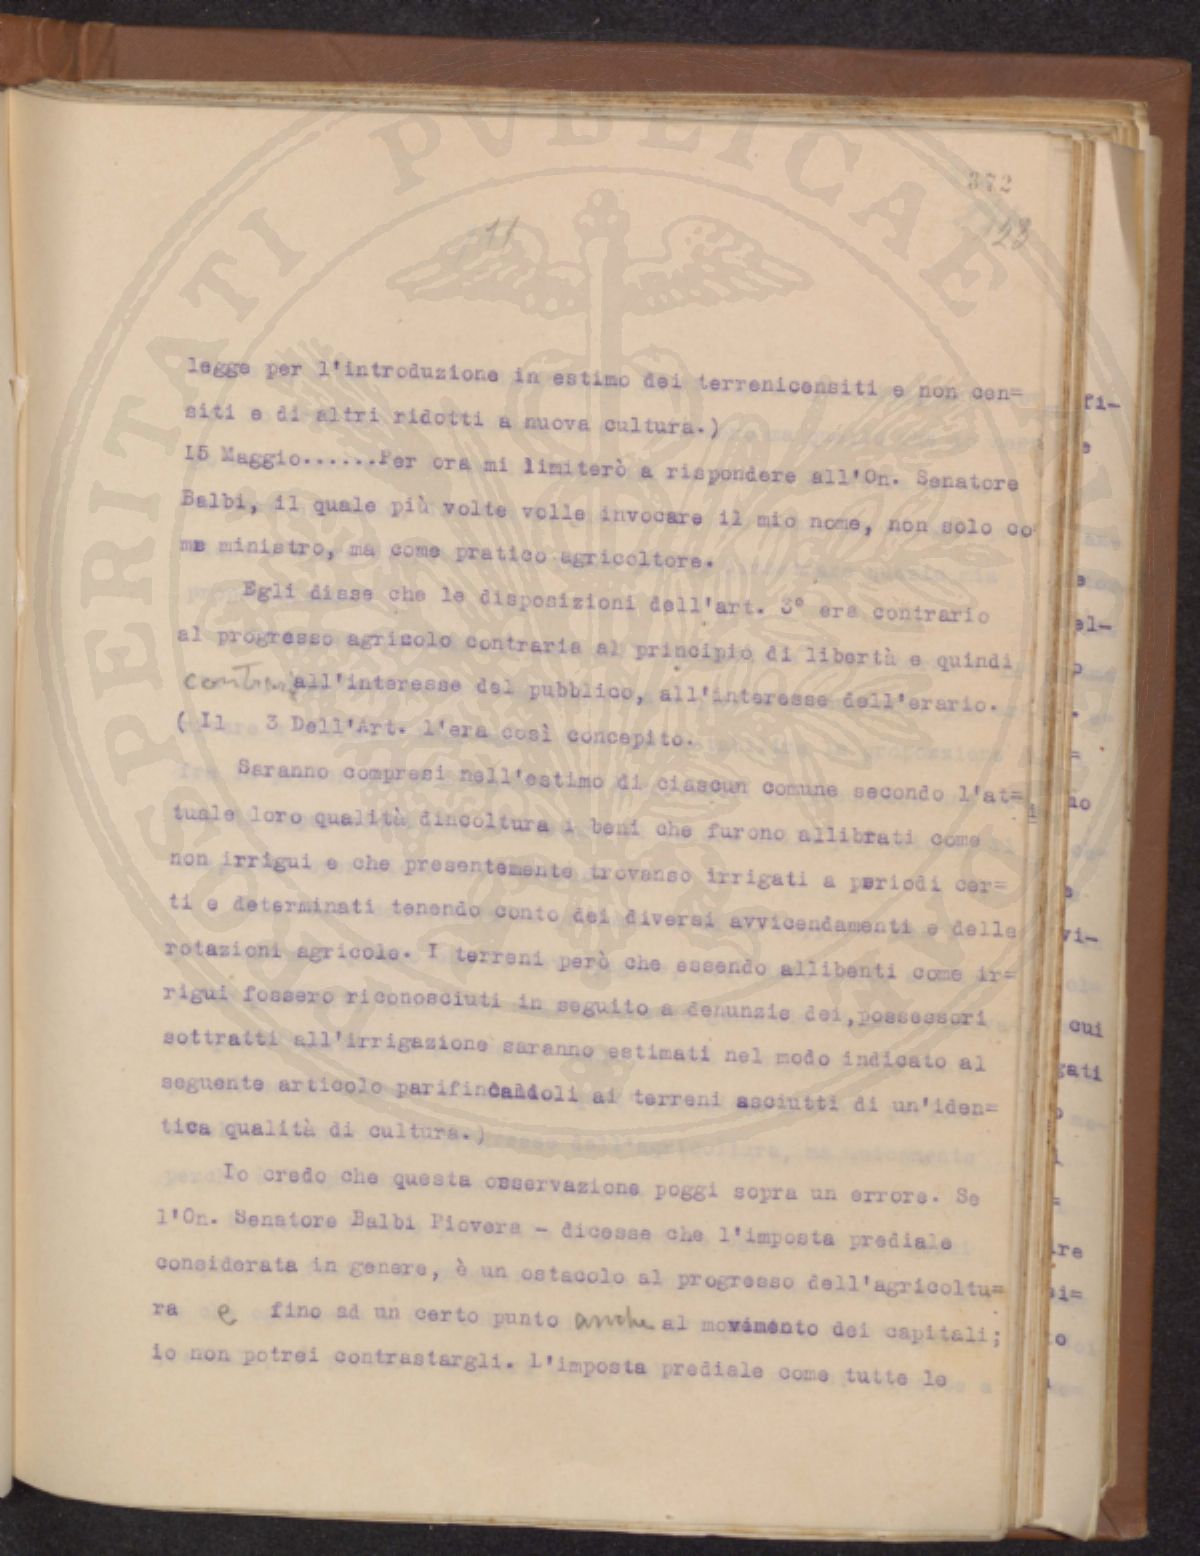 372
11
123
legge per l'introduzione in estimo dei terrenicensiti e non cen=
siti e di altri ridotti a nuova cultura.)
15 Maggio......Per ora mi limiterò a rispondere all'On. Senatore
Balbi, il quale più volte volle invocare il mio nome, non solo co
me ministro, ma come pratico agricoltore.
Egli disse che le disposizioni dell'art. 3° era contrario
al progresso agricolo contraria al principio di libertà e quindi
all'interesse del pubblico, all'interesse dell'erario.
( Il 3 Dell'Art. 1'era così concepito.
Saranno compresi nell'estimo di ciascun comune secondo l'at=
tuale loro qualità dincoltura i beni che furono allibrati come
non irrigui e che presentemente trovanso irrigati a periodi cer=
ti e determinati tenendo conto dei diversi avvicendamenti e delle
rotazioni agricole. I terreni però che essendo allibenti come ir=
rigui fossero riconosciuti in seguito a denunzie dei,possessori
sottratti all'irrigazione saranno estimati nel modo indicato al
seguente articolo parifincandoli ai terreni asciutti di un'iden=
tica qualità di cultura.)
Io credo che questa osservazione poggi sopra un errore. Se
l'On. Senatore Balbi Piovera - dicesse che l'imposta prediale
considerata in genere, è un ostacolo al progresso dell'agricoltu=
ra e fino ad un certo punto anche al movimento dei capitali;
io non potrei contrastargli. L'imposta prediale come tutte le